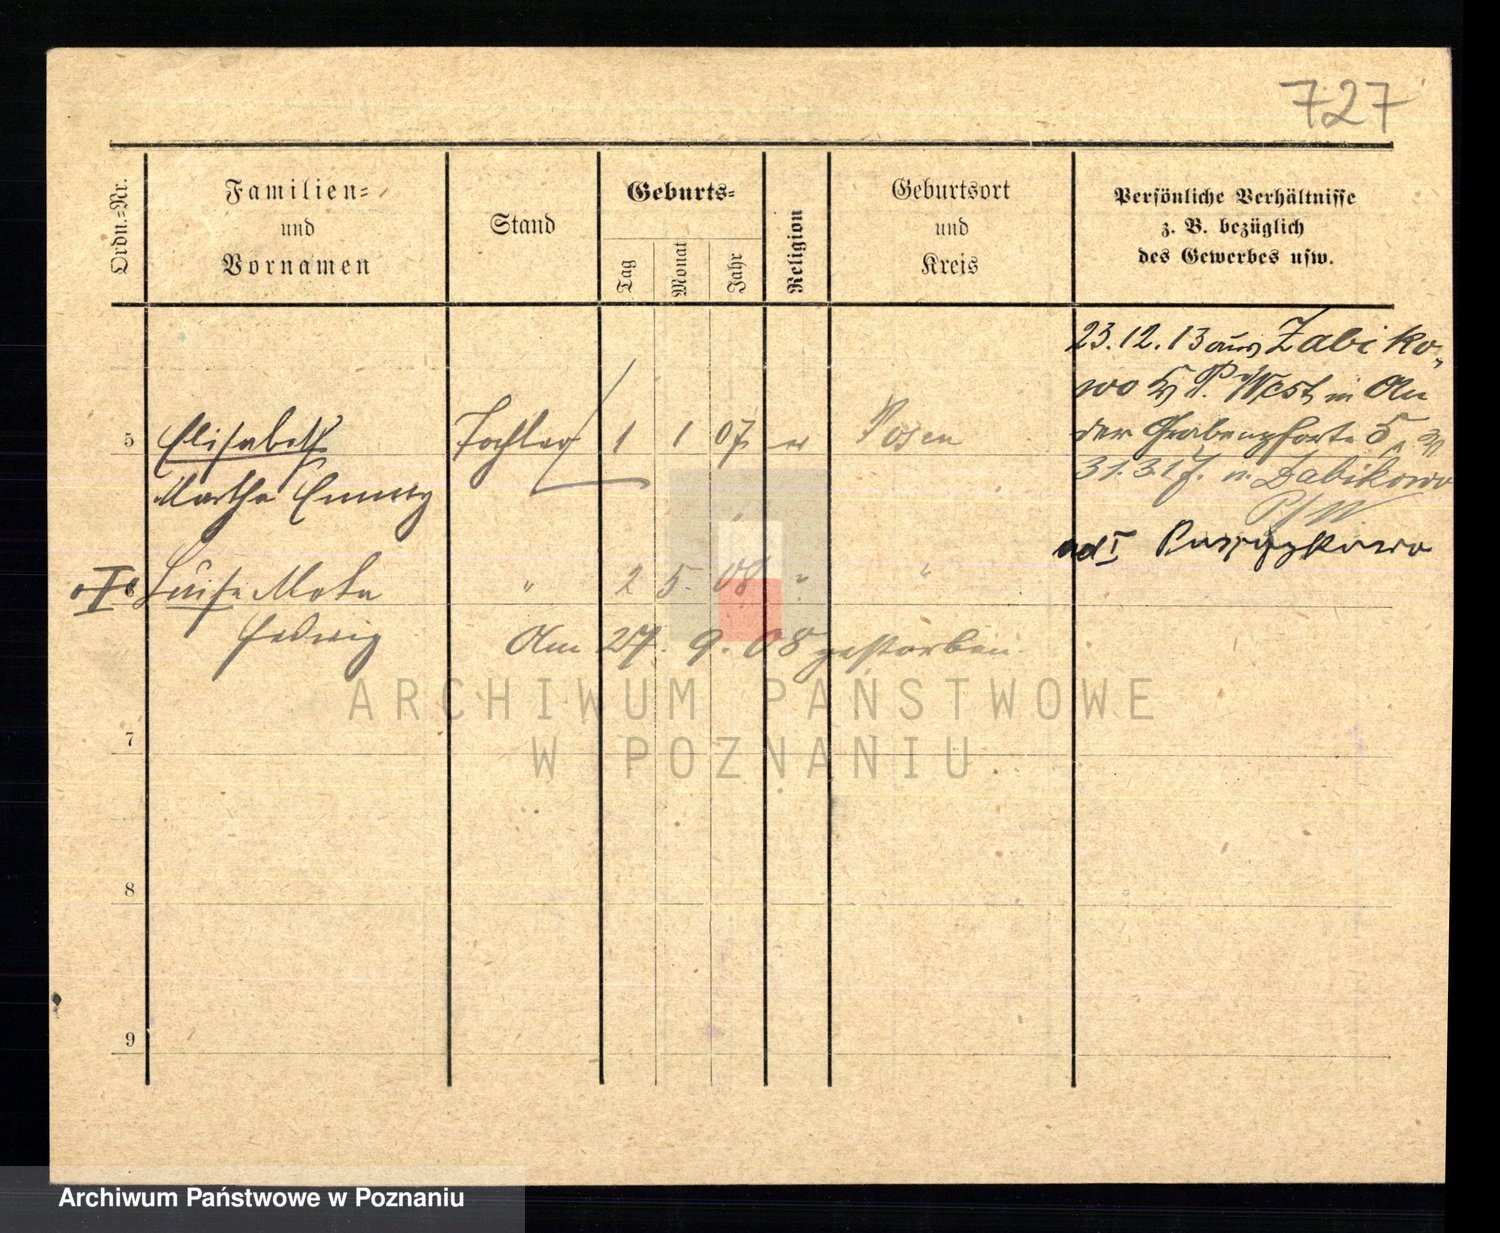 727
Ordn.-Nr.
Familien-
und
Vornamen
Stand
Geburts-
Tag
Monat
Jahr
Religion
Geburtsort
und
Kreis
Persönliche Verhältnisse
z. B. bezüglich
des Gewerbes usw.
23.12.13 aus Zabiko-
wo P. West in An
der Grabenpforte 5
5 Elisabeth Tochter 1 1 07 Posen
31.3.17. n. Zabikowo
Martha Emmy
P/W
ad I
6 Luise Meta " 2 5. 08 " "
Hedwig Am 27. 9. 08 gestorben
ARCHIWUM PAŃSTWOWE
W POZNANIU
7
8
9
Archiwum Państwowe w Poznaniu